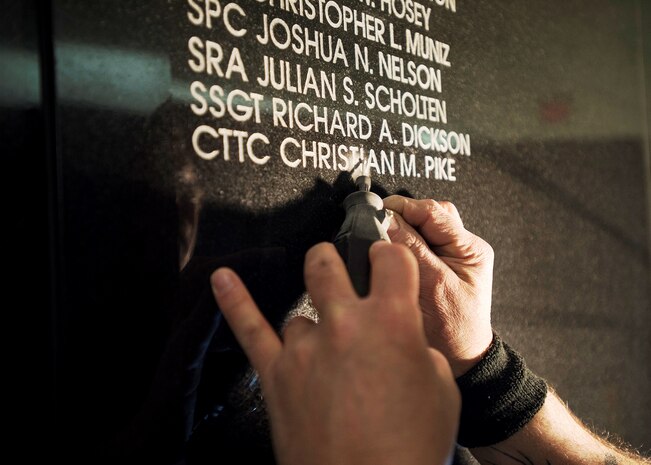 HOSEY
CHRISTOPHER L. MUNIZ
SPC JOSHUA N. NELSON
SRA JULIAN S. SCHOLTEN
SSGT RICHARD A. DICKSON
CTTC CHRISTIAN M. PIKE